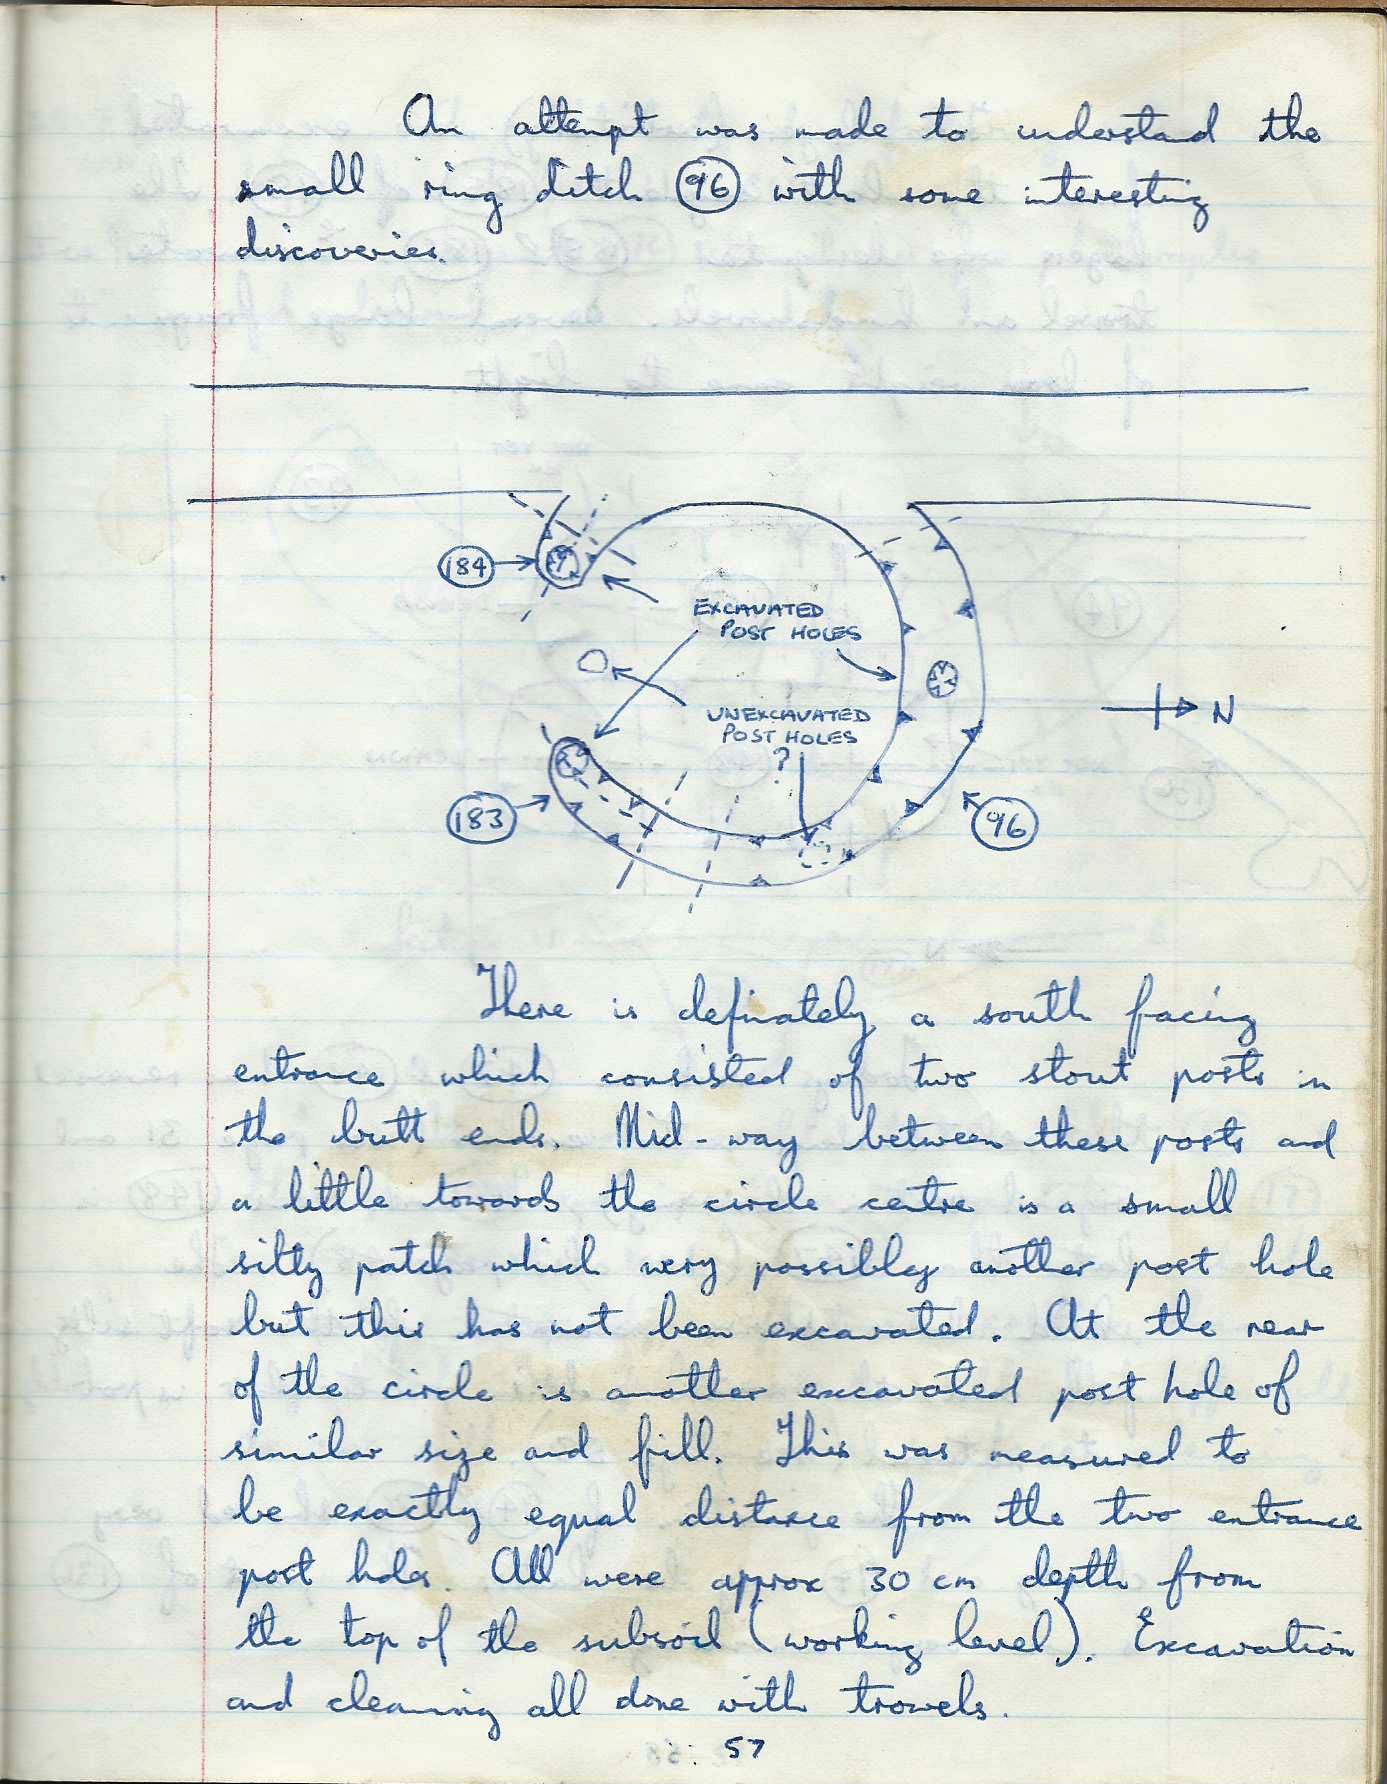 An attempt was made to understand the
small ring ditch 96 with some interesting
discoveries.
184
EXCAVATED
POST HOLES
UNEXCAVATED
POST HOLES
?
N
183
96
There is definately a south facing
entrance which consisted of two stout posts in
the butt ends. Mid-way between these posts and
a little towards the circle centre is a small
silty patch which very possibley another post hole
but this has not been excavated. At the rear
of the circle is another excavated post hole of
similar size and fill. This was measured to
be exactly equal distance from the two entrance
post holes. All were approx 30 cm depth from
the top of the subsoil (working level). Excavation
and cleaning all done with trowels.
57